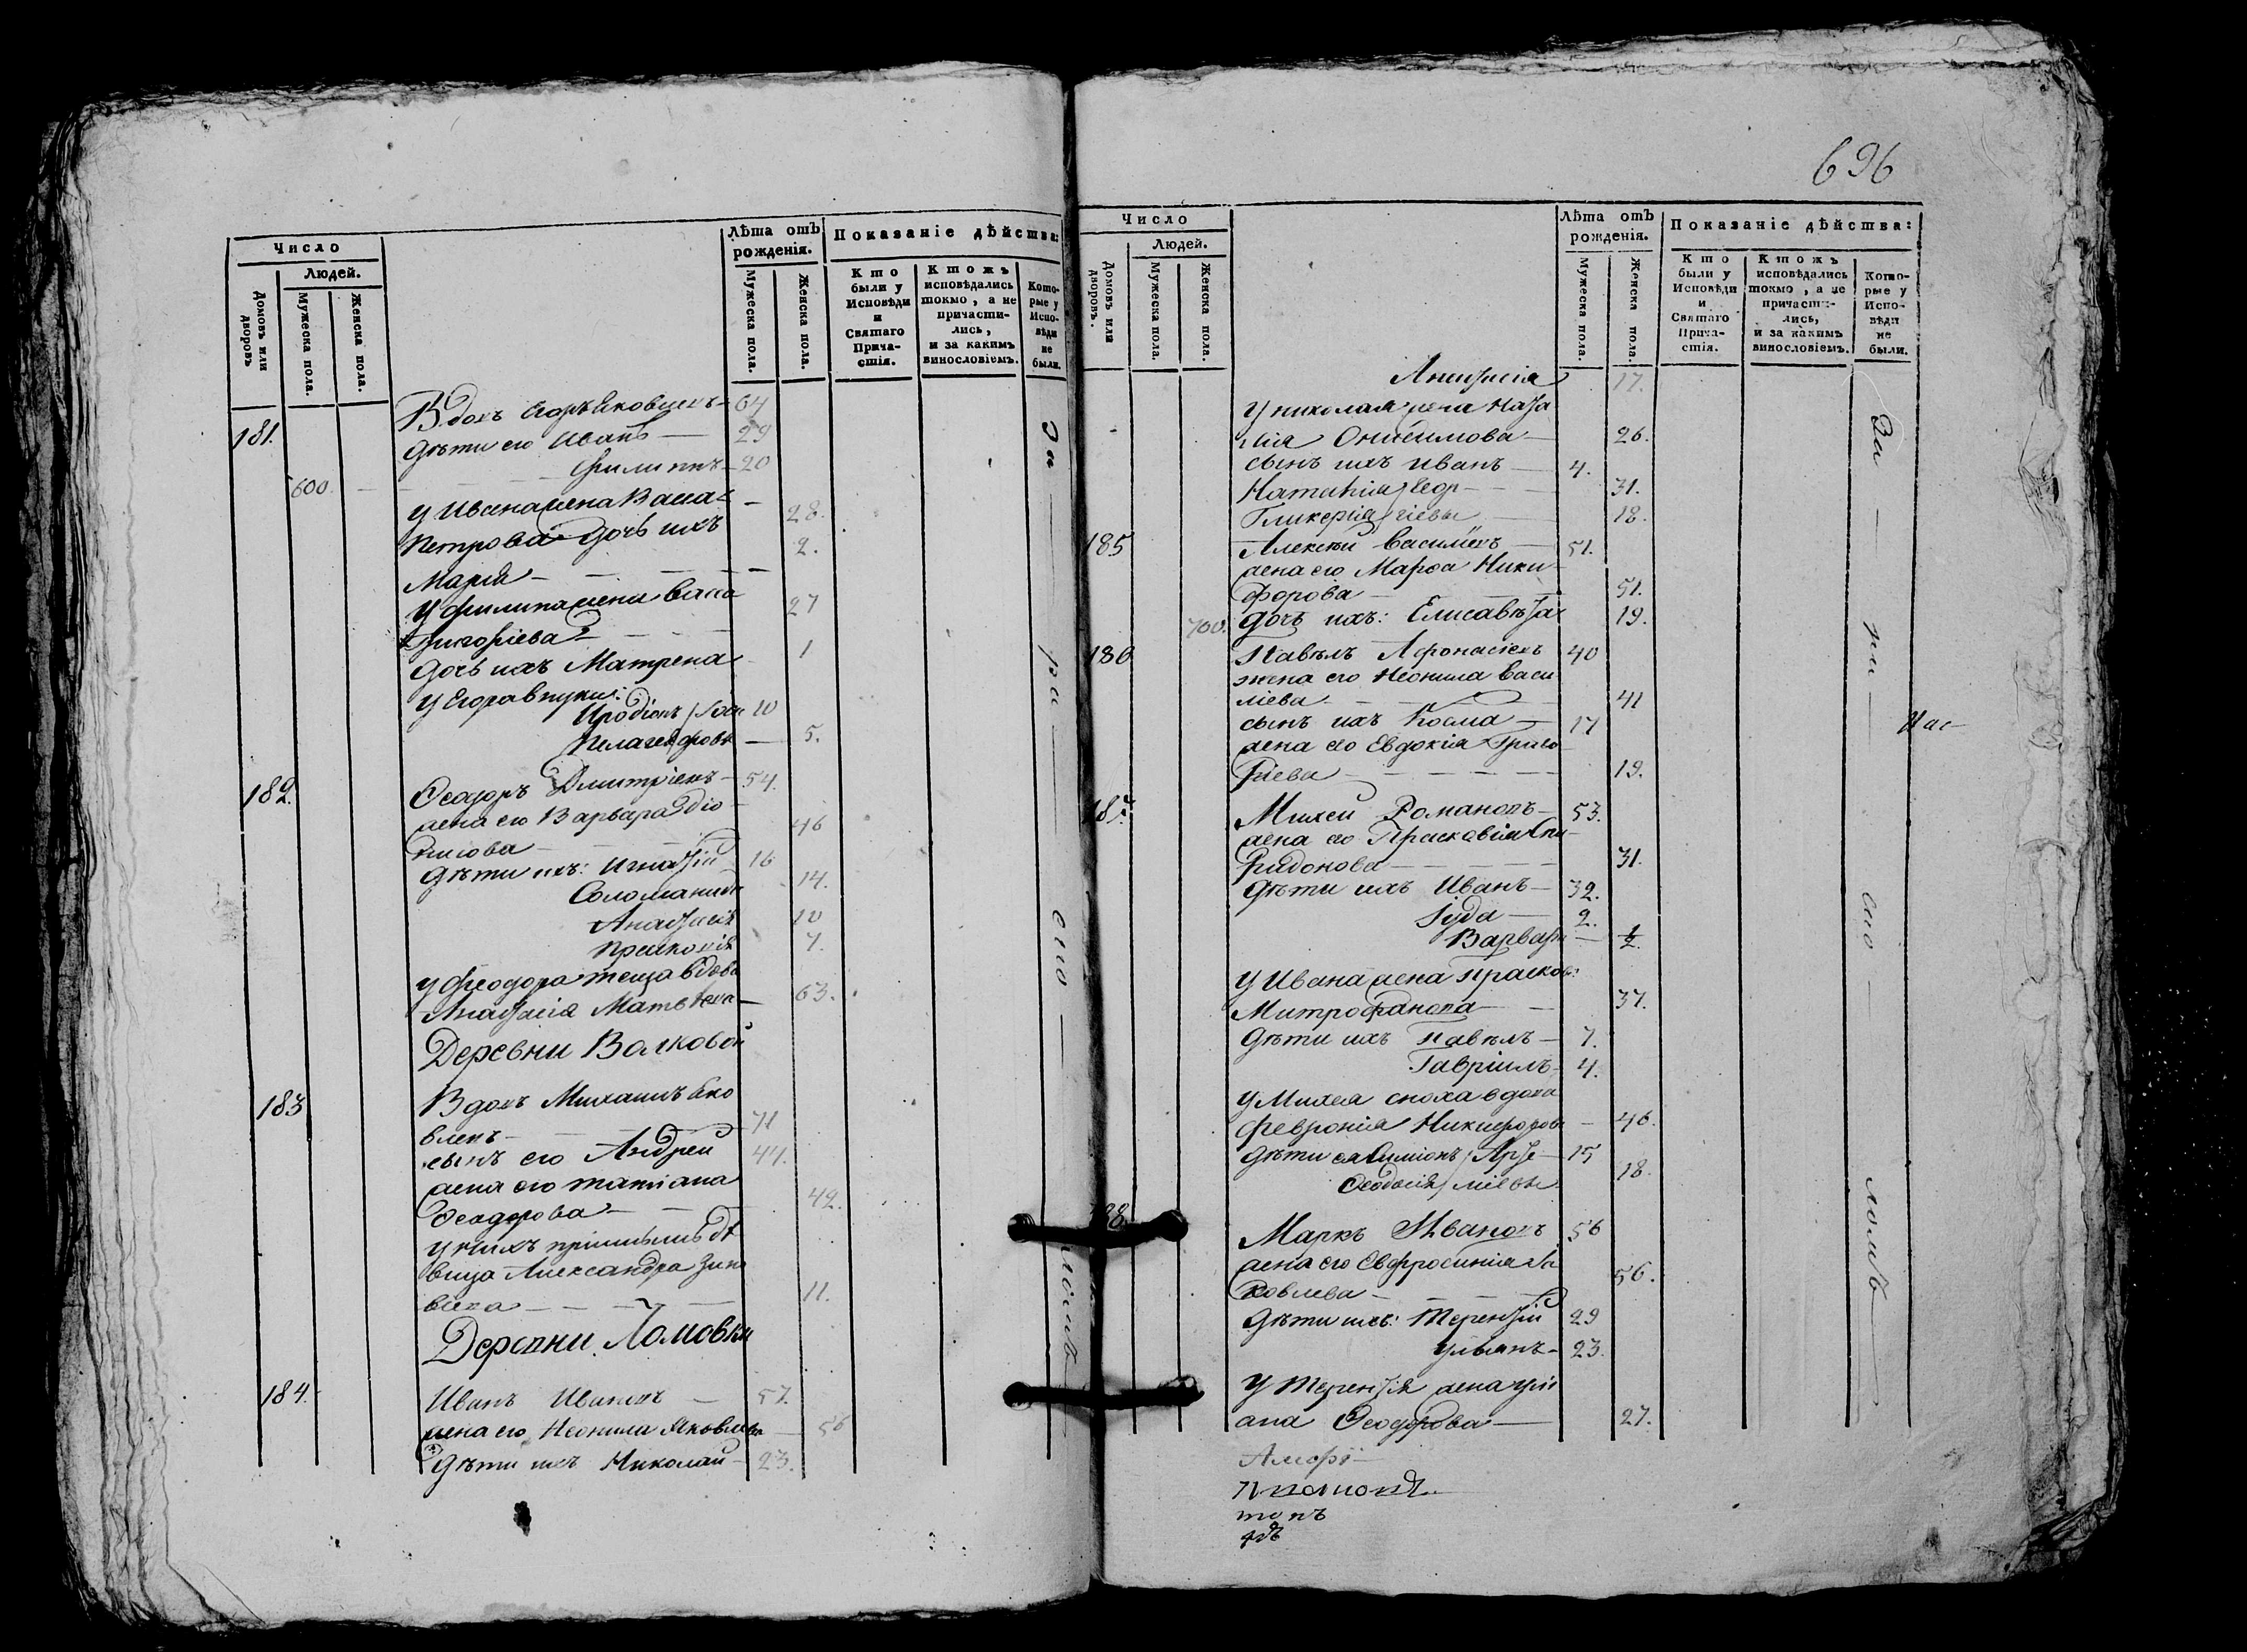 Число
Людей.
Домовъ или дворовъ
Мужеска пола.
Женска пола.
Лѣта отъ рожденія.
Мужеска пола.
Женска пола.
Показаніе дѣйства:
Кто были у Исповѣди и Святаго Причастія.
Ктожъ исповѣдались токмо, а не причастились, и за какимъ винословіемъ.
Которые у Исповѣди не были.
181. Вдовъ Егоръ Яковлевъ 64
дѣти его Иванъ 29
Филиппъ 20
600
у Ивана жена Васса 28.
Петрова дочь ихъ 2.
Марія
у Филипа жена Васса 27
Григоріева
дочь ихъ Матрена 1
у Егора внуки:
Иродіонъ 10
Пелагея 5.
182. Ѳеодоръ Дмитріевъ 54.
жена его Варвара Діо
нисова 46
дѣти ихъ: Игнатій 16
Соломанида 14.
Анастасія 10
Прасковія 7.
у Феодора теща вдова
Анастасія Матвѣева 63.
Деревни Волковой
183 Вдовъ Михаилъ Яко
влевъ 71
сынъ его Андрей 44.
жена его Татіана
Ѳеодорова 42.
у нихъ дѣ
вица Александра Зино
вьева 11.
Деревни Ломовки
184. Иванъ Ивановъ 57.
жена его Неонила Яковлева 56
дѣти ихъ Николай 23.
За ра сно ломъ
696
Число
Людей.
Домовъ или дворовъ.
Мужеска пола.
Женска пола.
Лѣта отъ рожденія.
Мужеска пола.
Женска пола.
Показаніе дѣйства:
Кто были у Исповѣди и Святаго Причастія.
Ктожъ исповѣдались токмо, а не причастились, и за какимъ винословіемъ.
Которые у Исповѣди не были.
Анастасія 17.
у Николая жена Ната
лія Онисимова 26.
сынъ ихъ Иванъ 4.
Наталія Геор 31.
Гликерія гіевы 18.
185 Алексѣй Васильевъ 51.
жена его Марѳа Ники
форова 51.
700. дочь ихъ: Елисавета 19.
186 Павелъ Афонасіевъ 40
жена его Неонила Васи
ліева 41
сынъ ихъ Косма 17
жена его Евдокія Григо
ріева 19.
187. Михей Романовъ 53.
жена его Прасковія Спи
ридонова 31.
дѣти ихъ Иванъ 32.
Іуда 2.
Варвара ½.
у Ивана жена Прасков:
Митрофанова 37.
дѣти ихъ Павелъ 7.
Гавріилъ 4.
у Михея сноха вдова
Февронія Никифорова 46.
дѣти ея Симіонъ Арте 15
Ѳеодосія міевы 18.
188 Маркъ Ивановъ 56
жена его Евфросинія Яковлева 56.
дѣти ихъ: Терентій 29
Ульянъ 23.
у Терентія жена Улі
ана Ѳеодорова 27.
За ра сно ломъ